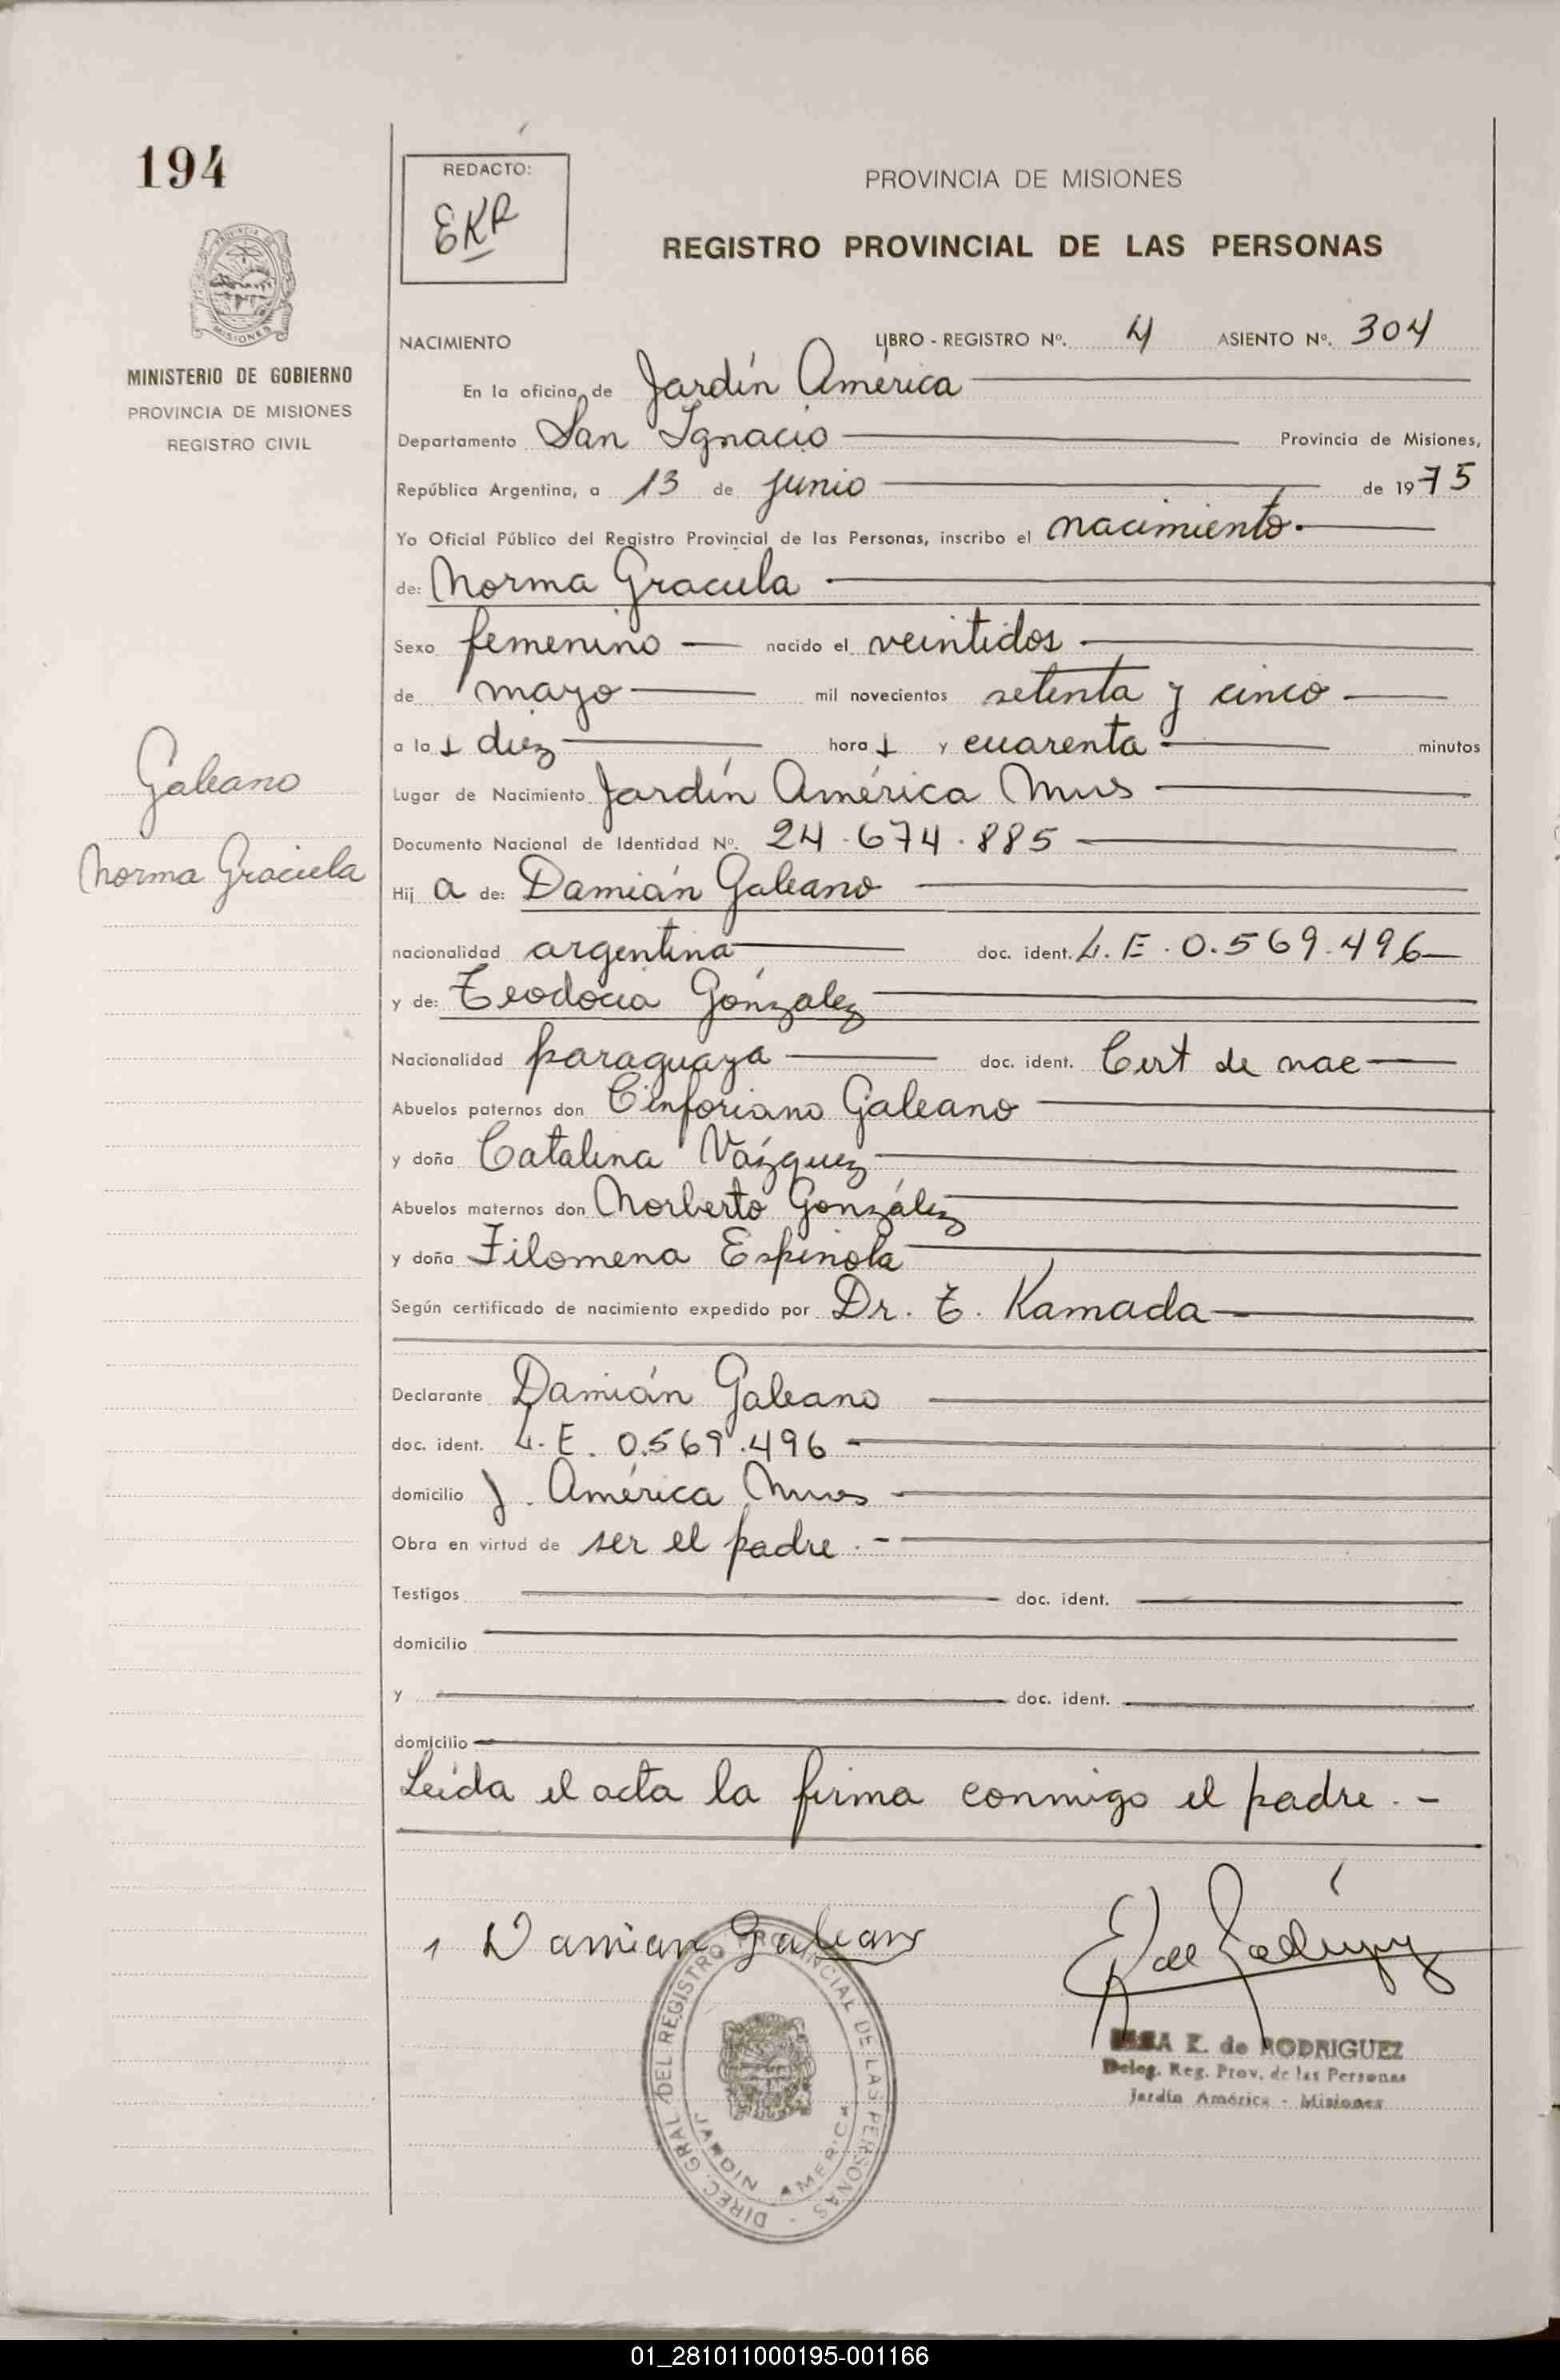 194
REDACTO:
EKR
PROVINCIA DE MISIONES
REGISTRO PROVINCIAL DE LAS PERSONAS
MINISTERIO DE GOBIERNO
PROVINCIA DE MISIONES
REGISTRO CIVIL
NACIMIENTO LIBRO - REGISTRO Nº. 4 ASIENTO Nº. 304
En la oficina de Jardín América
Departamento San Ignacio Provincia de Misiones,
República Argentina, a 13 de junio de 1975
Yo Oficial Público del Registro Provincial de las Personas, inscribo el nacimiento.
de: Norma Graciela
Sexo femenino nacido el veintidos
de mayo mil novecientos setenta y cinco
a las diez horas y cuarenta minutos
Galeano
Norma Graciela
Lugar de Nacimiento Jardín América Mnes
Documento Nacional de Identidad Nº. 24.674.885
Hij a de: Damián Galeano
nacionalidad argentina doc. ident. L.E. 0.569.496
y de: Teodocia González
Nacionalidad paraguaya doc. ident. Cert de nac
Abuelos paternos don Cinforiano Galeano
y doña Catalina Vázquez
Abuelos maternos don Norberto González
y doña Filomena Espinola
Según certificado de nacimiento expedido por Dr. T. Kamada
Declarante Damián Galeano
doc. ident. L.E. 0.569.496
domicilio J. América Mnes
Obra en virtud de ser el padre.-
Testigos doc. ident.
domicilio
y doc. ident.
domicilio
Leída el acta la firma conmigo el padre.-
Damian Galeano
DIREC. GRAL. DEL REGISTRO PROVINCIAL DE LAS PERSONAS
JARDIN AMERICA
K. de RODRIGUEZ
Deleg. Reg. Prov. de las Personas
Jardín América - Misiones
01_281011000195-001166